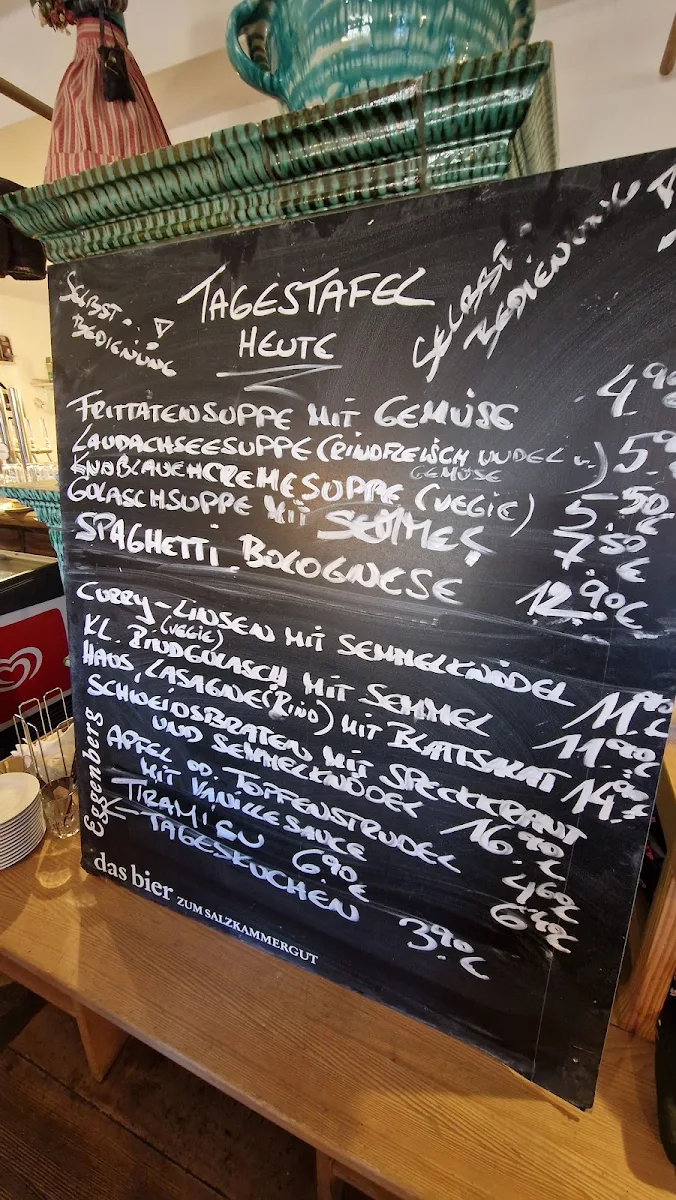 SELBST-
BEDIENUNG
TAGESTAFEL
HEUTE
SELBST-
BEDIENUNG
FRITTATENSUPPE MIT GEMÜSE 4,90
LAUDACHSEESUPPE (RINDFLEISCH NUDEL U. GEMÜSE) 5,90
KNOBLAUCHCREMESUPPE (VEGIE) 5,50 €
GOLASCHSUPPE MIT SEMMEL 7,50 €
SPAGHETTI BOLOGNESE 12,90 €
CURRY-LINSEN MIT SEMMELKNÖDEL 11,90 €
(VEGIE)
KL. RINDGOLASCH MIT SEMMEL 11,90 €
HAUS. LASAGNE (RIND) MIT BLATTSALAT 14,90 €
SCHWEIDSBRATEN MIT SPECKKRAUT
UND SEMMELKNÖDEL 16,90 €
APFEL OD. TOPFENSTRUDEL 4,60 €
MIT VANILLESAUCE 6,40 €
TIRAMISU 6,90 €
TAGESKUCHEN 3,90 €
Eggenberg
das bier ZUM SALZKAMMERGUT